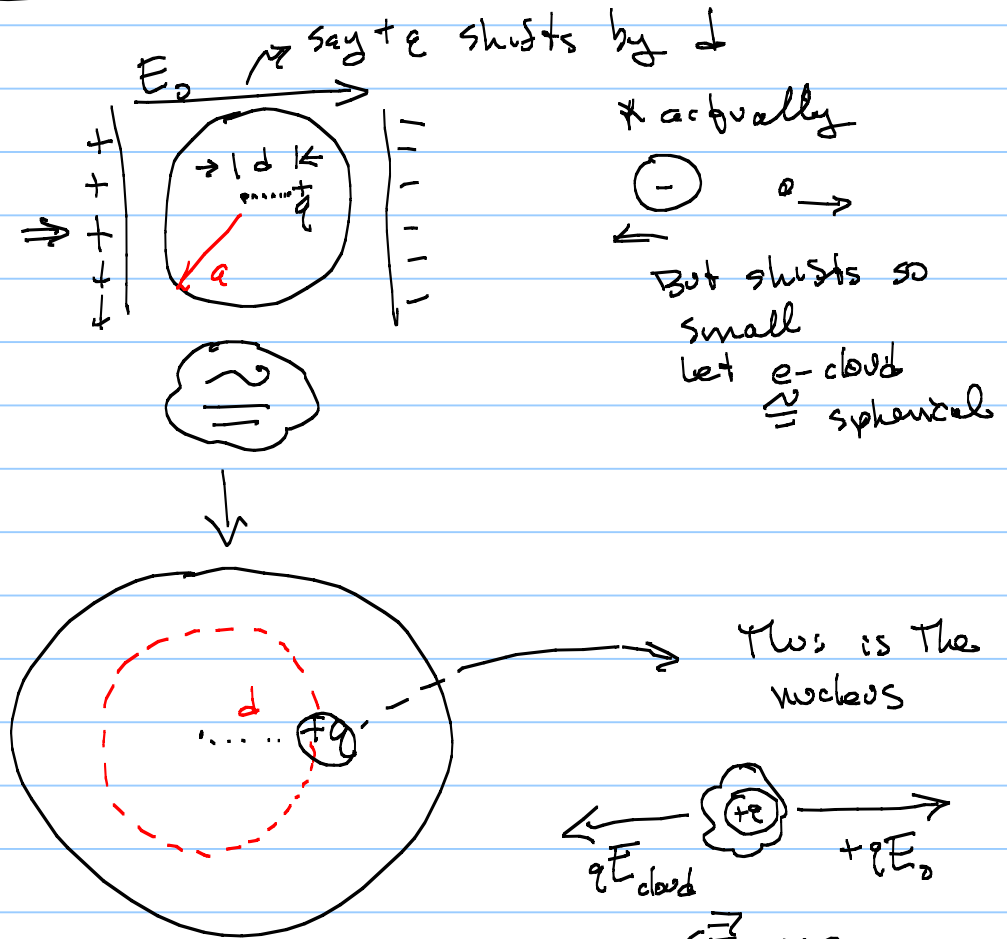 say +q shifts by d
E₀
* actually
+ + + + +
→ | d | ←
+q
a
− − − − − −
−
But shifts so
small
Let e- cloud
≅ spherical
≅
This is the
nucleus
d
+q
+q
qE_cloud
+qE₀